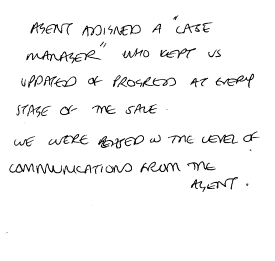 AGENT ASSIGNED A "CASE
MANAGER" WHO KEPT US
UPDATED OF PROGRESS AT EVERY
STAGE OF THE SALE.
WE WERE W THE LEVEL OF
COMMUNICATIONS FROM THE
AGENT.